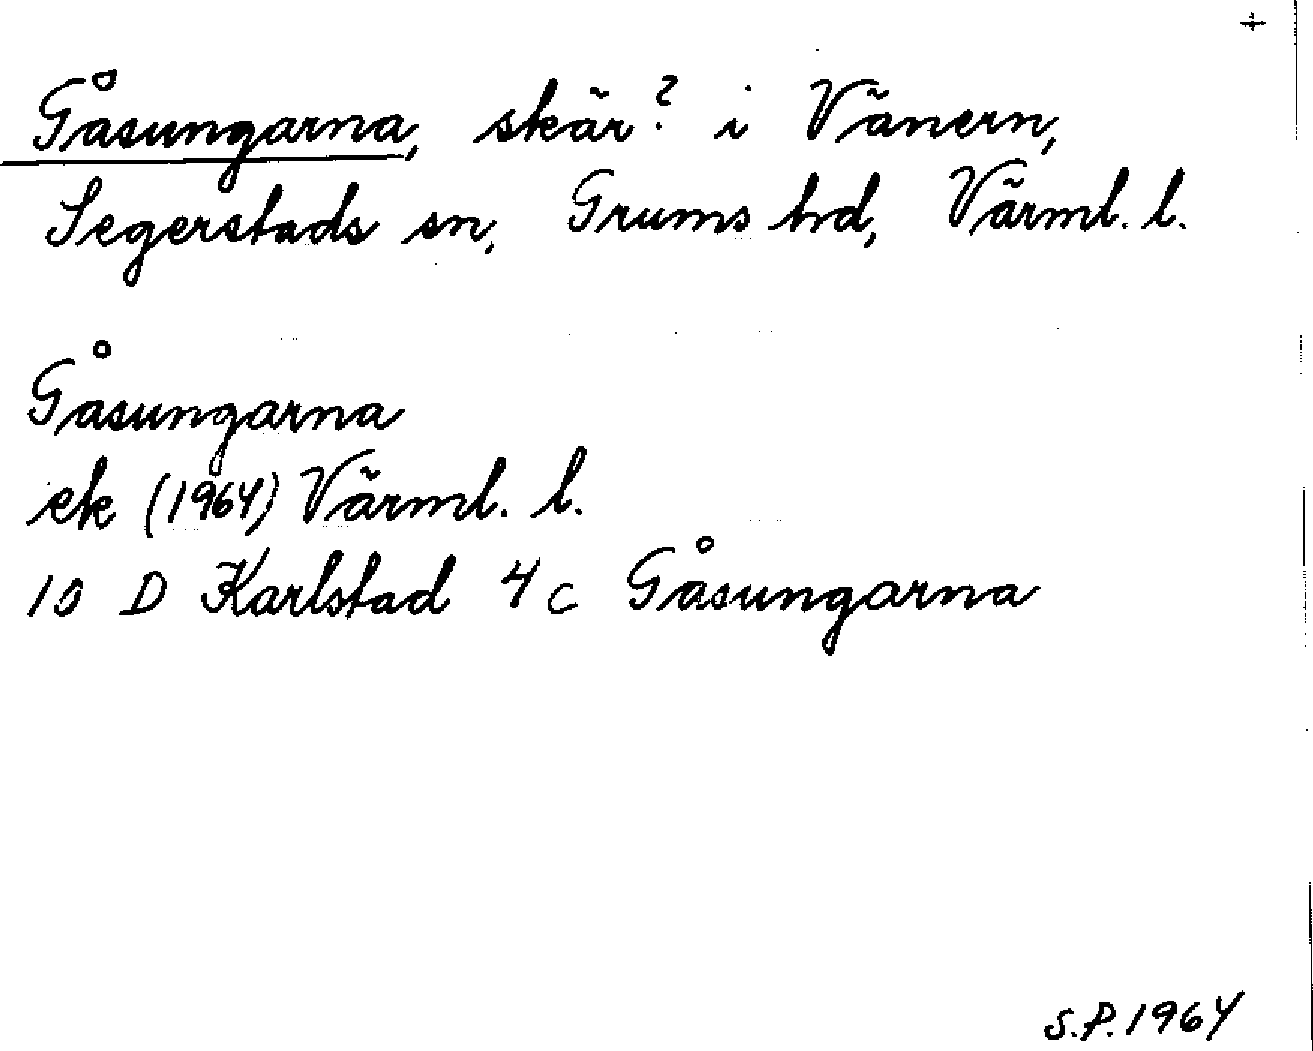 +
Gåsungarna, skär? i Vänern,
Segerstads sn, Grums hd, Värml. l.
Gåsungarna
ek (1964) Värml. l.
10 D Karlstad 4 c Gåsungarna
S.P. 1964